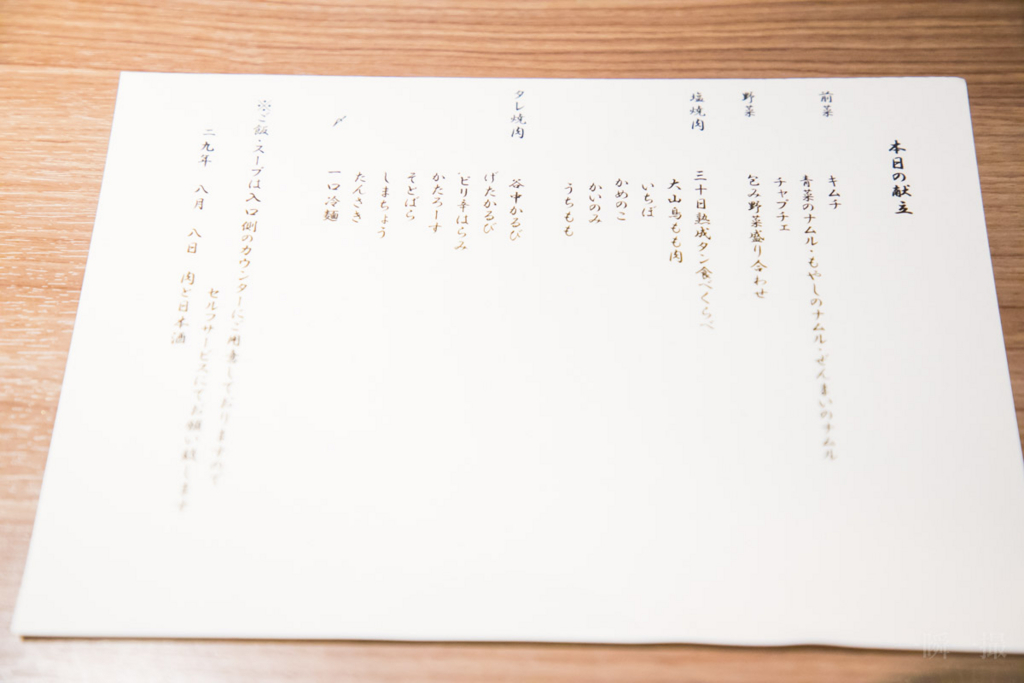 本日の献立
前菜
キムチ
青菜のナムル・もやしのナムル・ぜんまいのナムル
チャプチェ
野菜
包み野菜盛り合わせ
塩焼肉
三十日熟成タン食べくらべ
大山鳥もも肉
いちぼ
かめのこ
かいのみ
うちもも
タレ焼肉
谷中かるび
げたかるび
ピリ辛はらみ
かたろーす
そとばら
しまちょう
たんさき
〆
一口冷麺
※ご飯・スープは入口側のカウンターにご用意しておりますので
セルフサービスにてお願い致します
二九年 八月 八日 肉と日本酒